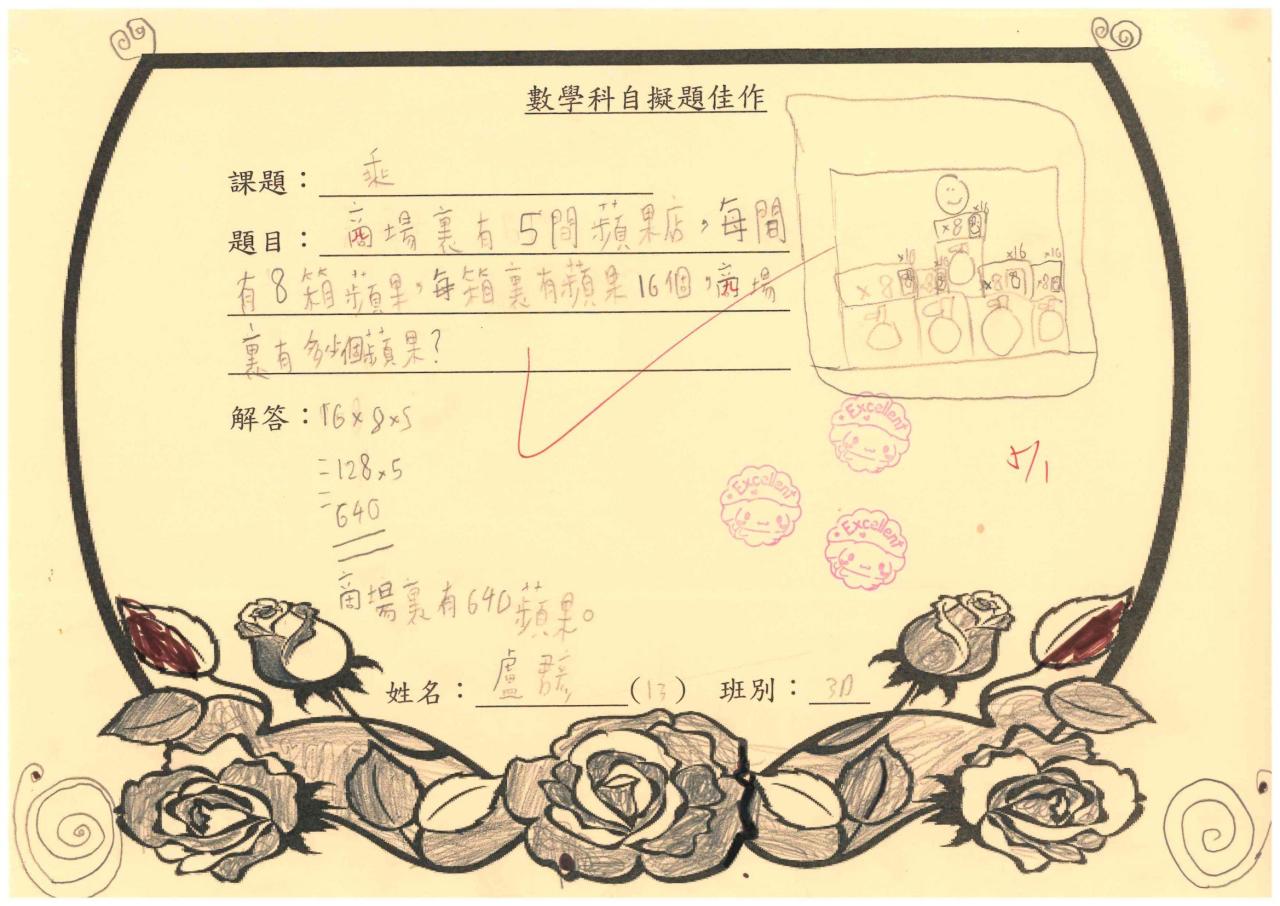 數學科自擬題佳作
課題：乘
題目：商場裏有5間蘋果店，每間
有8箱蘋果，每箱裏有蘋果16個，商場
裏有多少個蘋果？
×16
×8
×16
×16
×16
×8
×8
×8
×8
解答：16×8×5
=128×5
=640
商場裏有640蘋果。
Excellent
Excellent
Excellent
5/1
姓名：盧(13) 班別：3D